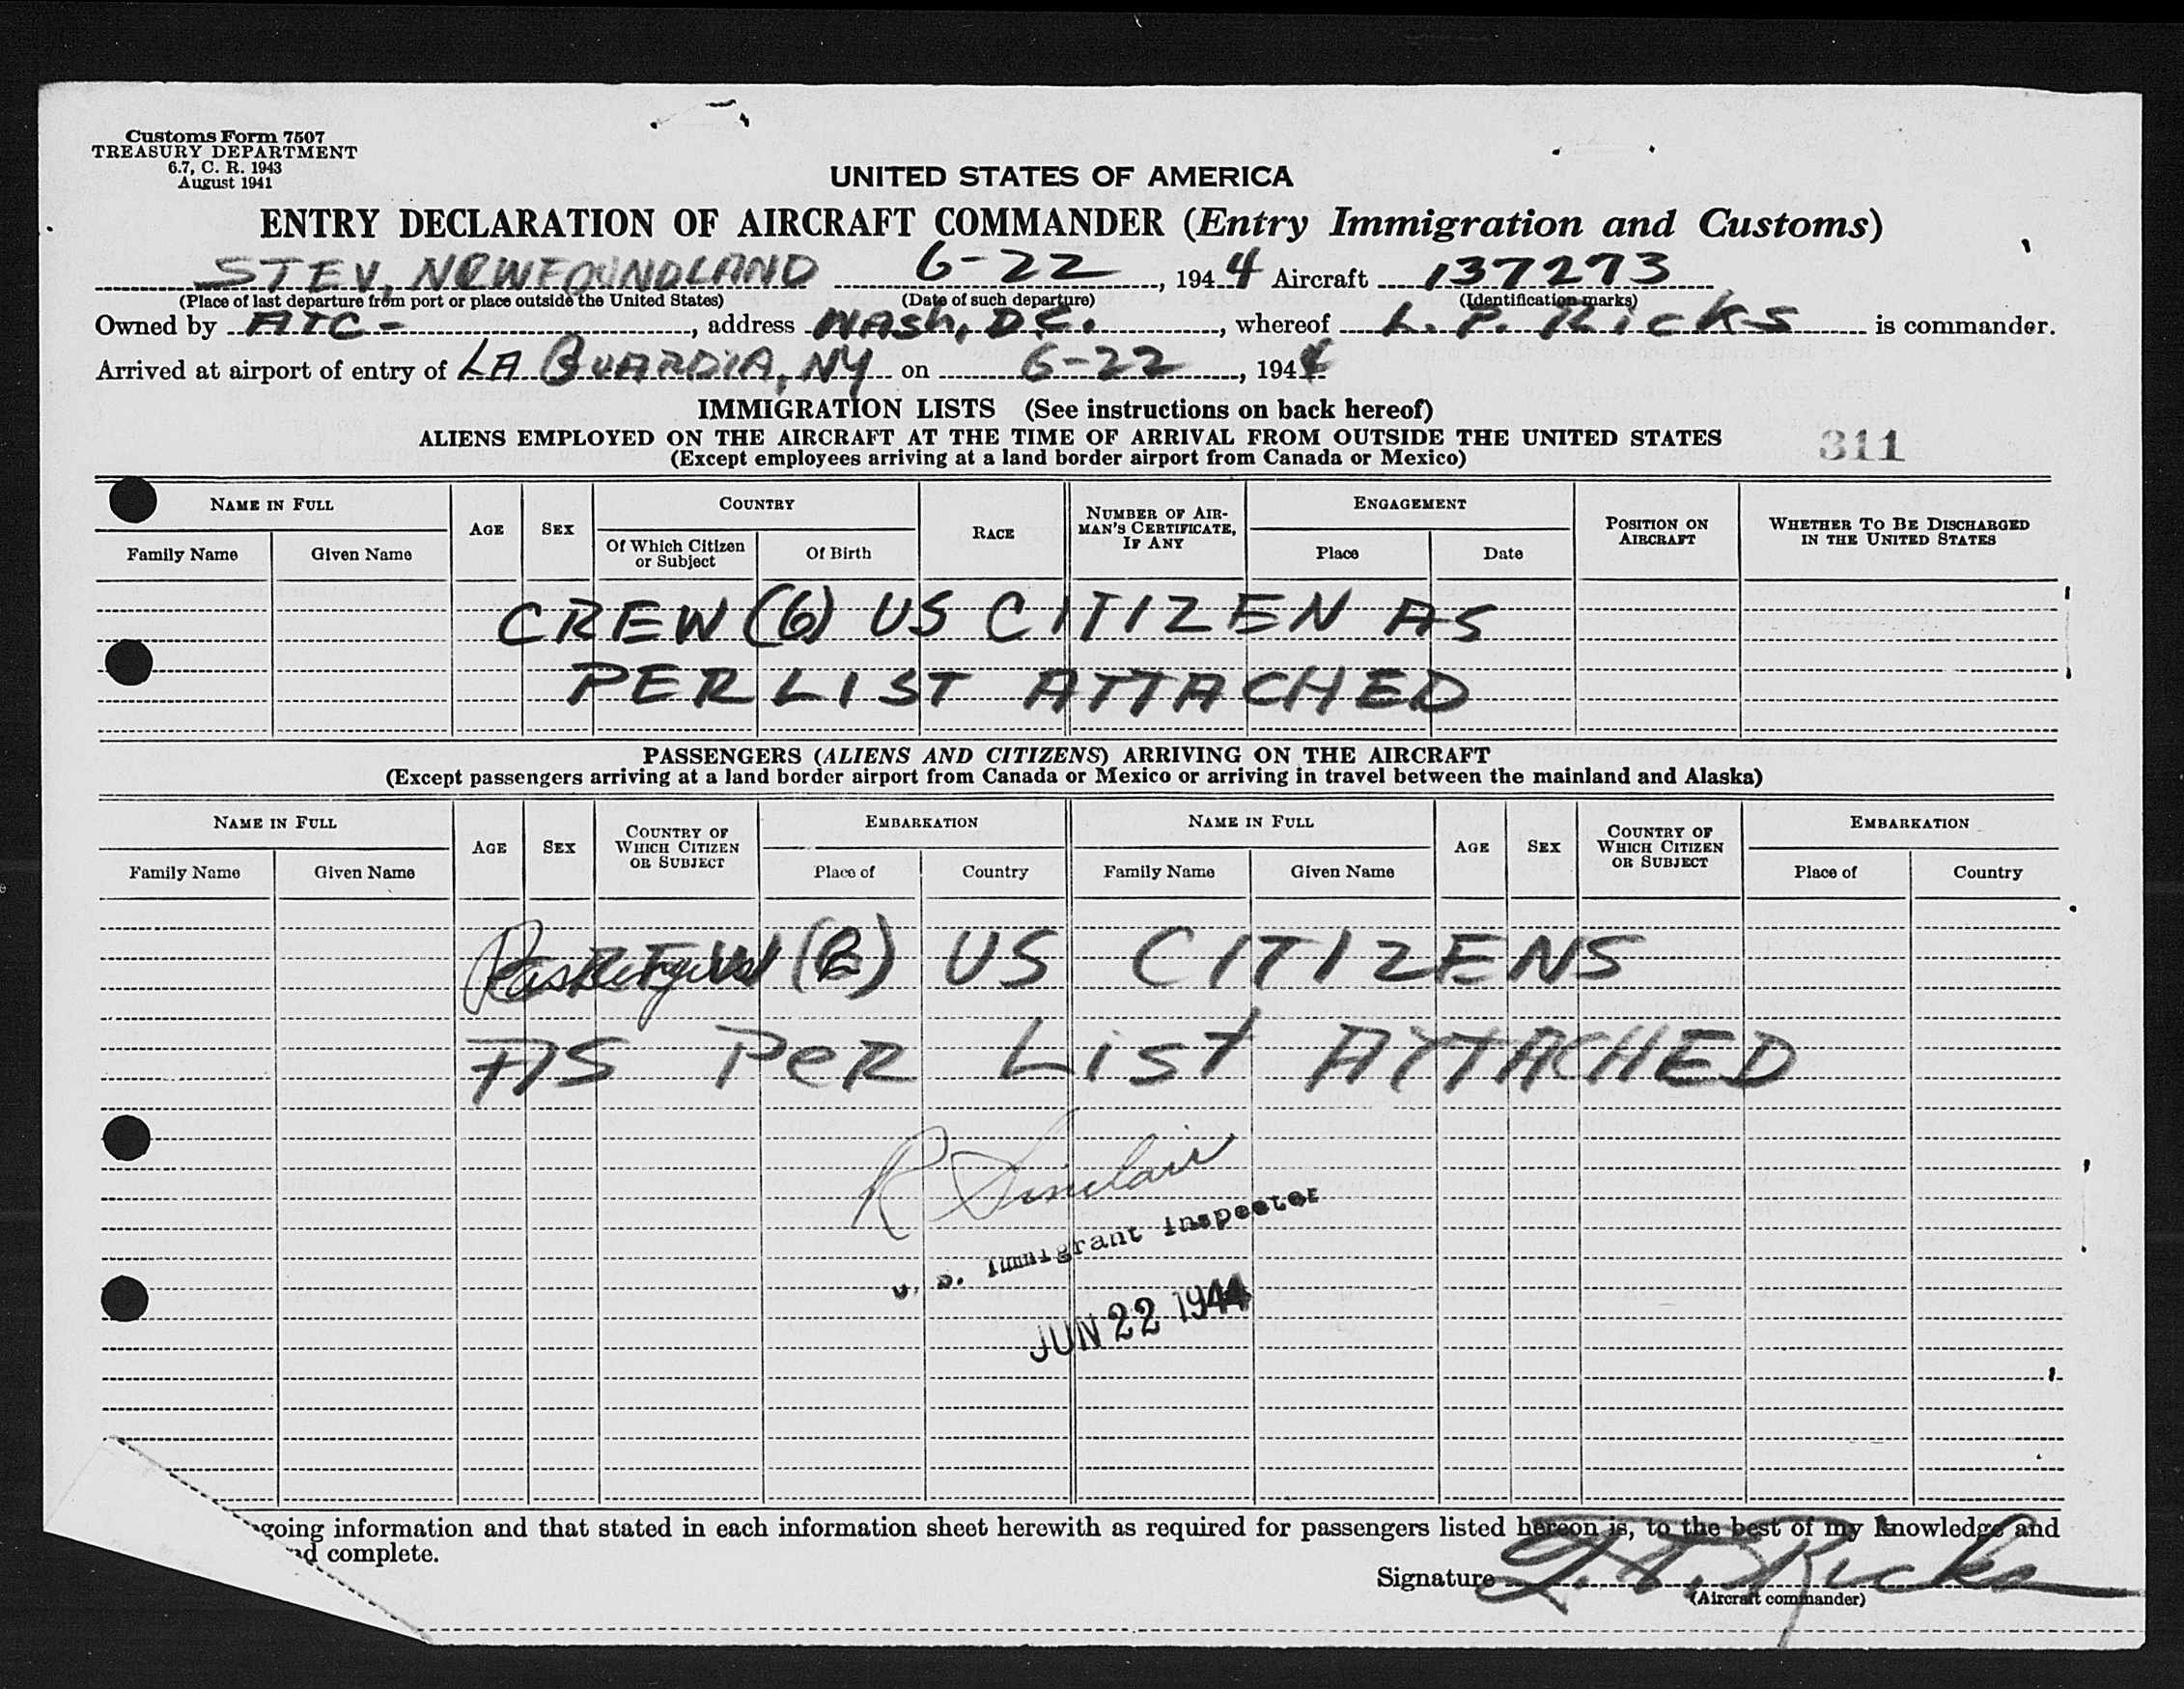 Customs Form 7507
TREASURY DEPARTMENT
6.7, C. R. 1943
August 1941
UNITED STATES OF AMERICA
ENTRY DECLARATION OF AIRCRAFT COMMANDER (Entry Immigration and Customs)
STEV, NEWFOUNDLAND 6-22, 1944 Aircraft 137273
(Place of last departure from port or place outside the United States) (Date of such departure) (Identification marks)
Owned by ATC-, address WASh, DC., whereof L. P. RicKS is commander.
Arrived at airport of entry of LA GUARDIA, NY on 6-22, 1944
IMMIGRATION LISTS (See instructions on back hereof)
ALIENS EMPLOYED ON THE AIRCRAFT AT THE TIME OF ARRIVAL FROM OUTSIDE THE UNITED STATES
311
(Except employees arriving at a land border airport from Canada or Mexico)
NAME IN FULL AGE SEX COUNTRY RACE NUMBER OF AIRMAN'S CERTIFICATE, IF ANY ENGAGEMENT POSITION ON AIRCRAFT WHETHER TO BE DISCHARGED IN THE UNITED STATES
Family Name Given Name Of Which Citizen or Subject Of Birth Place Date
CREW (6) US CITIZEN AS
PER LIST ATTACHED
PASSENGERS (ALIENS AND CITIZENS) ARRIVING ON THE AIRCRAFT
(Except passengers arriving at a land border airport from Canada or Mexico or arriving in travel between the mainland and Alaska)
NAME IN FULL AGE SEX COUNTRY OF WHICH CITIZEN OR SUBJECT EMBARKATION NAME IN FULL AGE SEX COUNTRY OF WHICH CITIZEN OR SUBJECT EMBARKATION
Family Name Given Name Place of Country Family Name Given Name Place of Country
US CITIZENS
AS PeR LisT ATTACHED
R Sinclair
U. S. Immigrant Inspector
JUN 22 1944
going information and that stated in each information sheet herewith as required for passengers listed hereon is, to the best of my knowledge and
nd complete.
Signature L. P. Ricks
(Aircraft commander)